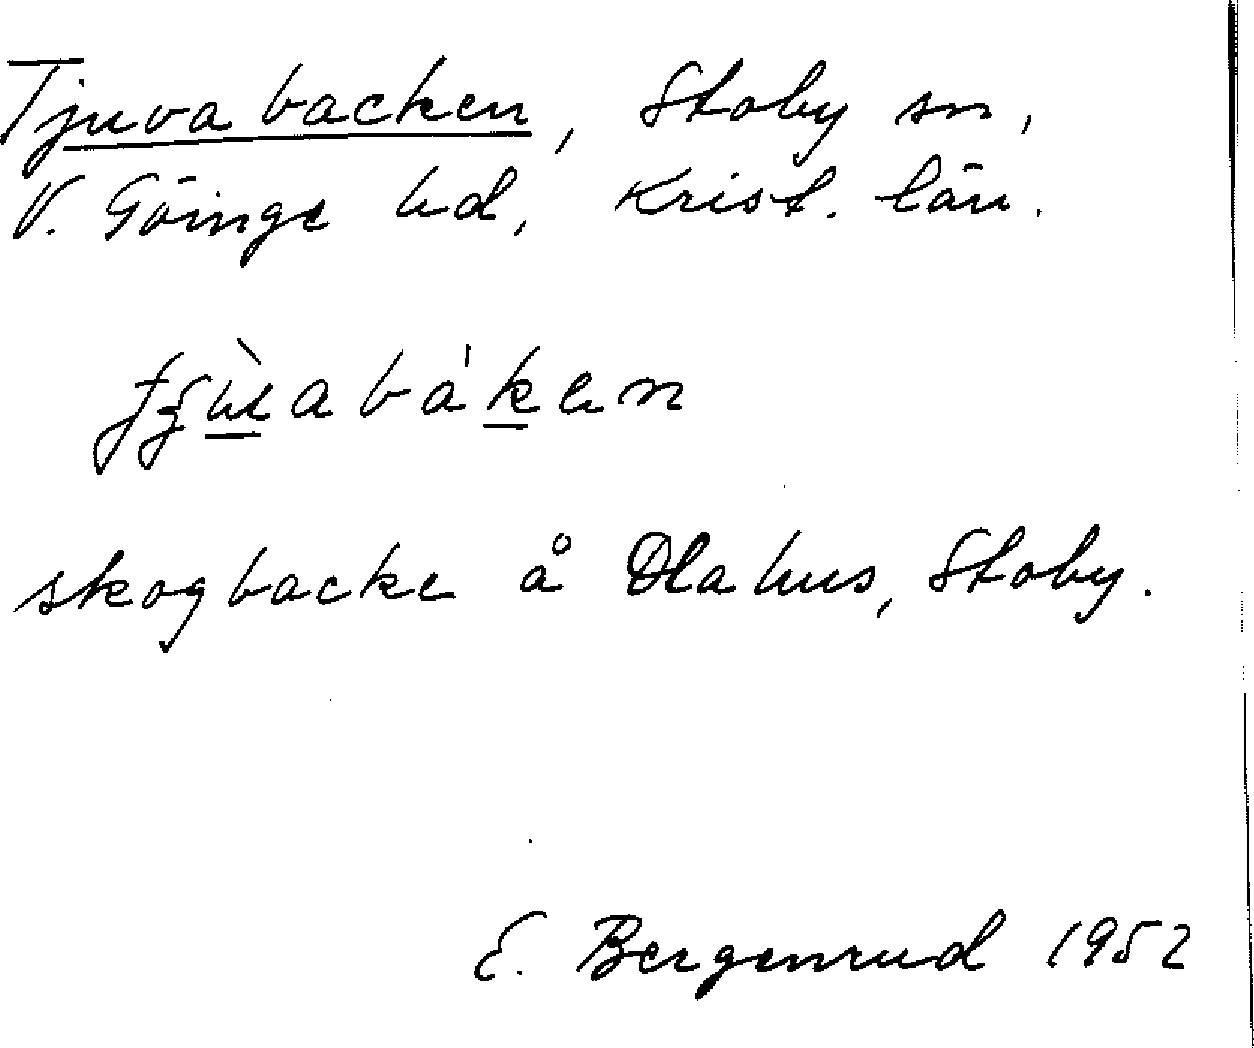 Tjuvabacken, Stoby sn,
V. Göinge hd, Krist. län.
skogbacke å Olahus, Stoby.
E. Bergenrud 1952